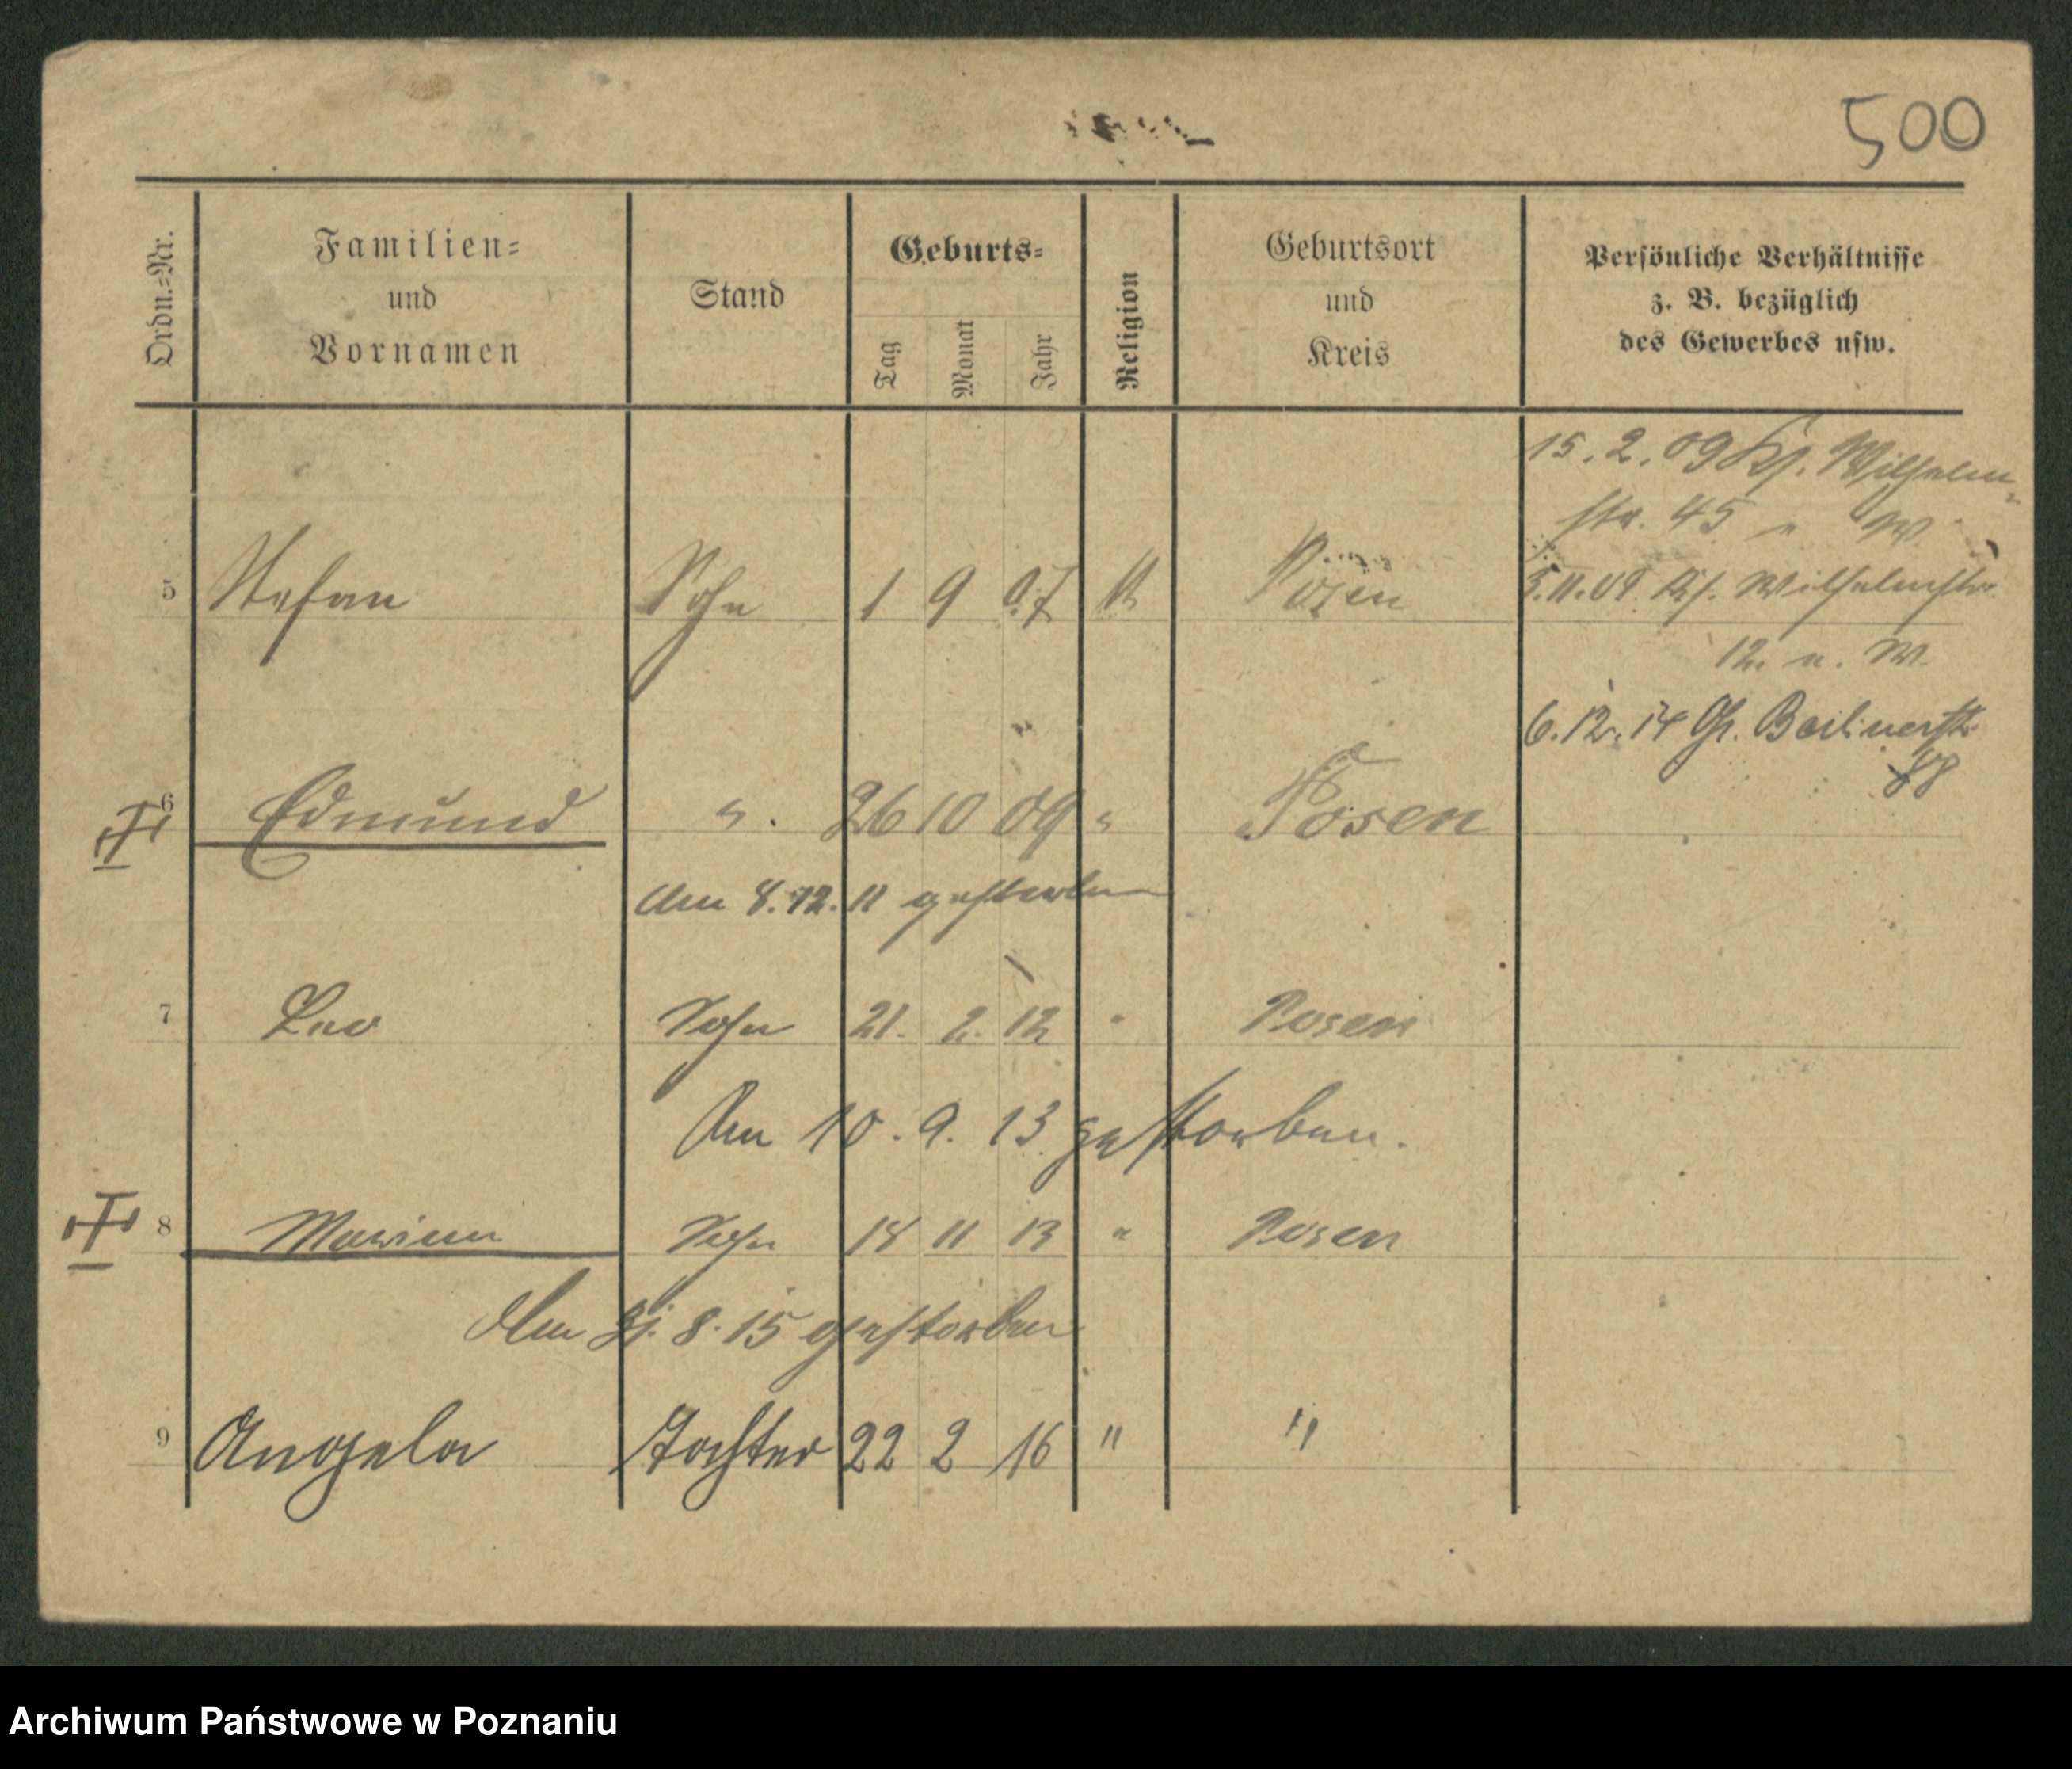 500
Ordn.=Nr.
Familien=
und
Vornamen
Stand
Geburts=
Tag
Monat
Jahr
Religion
Geburtsort
und
Kreis
Persönliche Verhältnisse
z. B. bezüglich
des Gewerbes usw.
15. 2. 09 Wilhelm=
str. 45 W.
5 Stefan Sohn 1 9 07 Posen 5. 11. 09 Wilhelmstr.
12 u. W.
6. 12. 14 Gr. Berlinerstr.
88
6 Edmund " 26 10 09 " Posen
Am 8. 12. 11 gestorben
7 Leo Sohn 21. 2. 12 " Posen
Am 10. 9. 13 gestorben.
8 Marian Sohn 18 11 13 " Posen
Am 31. 8. 15 gestorben
9 Angela Tochter 22 2 16 " "
Archiwum Państwowe w Poznaniu